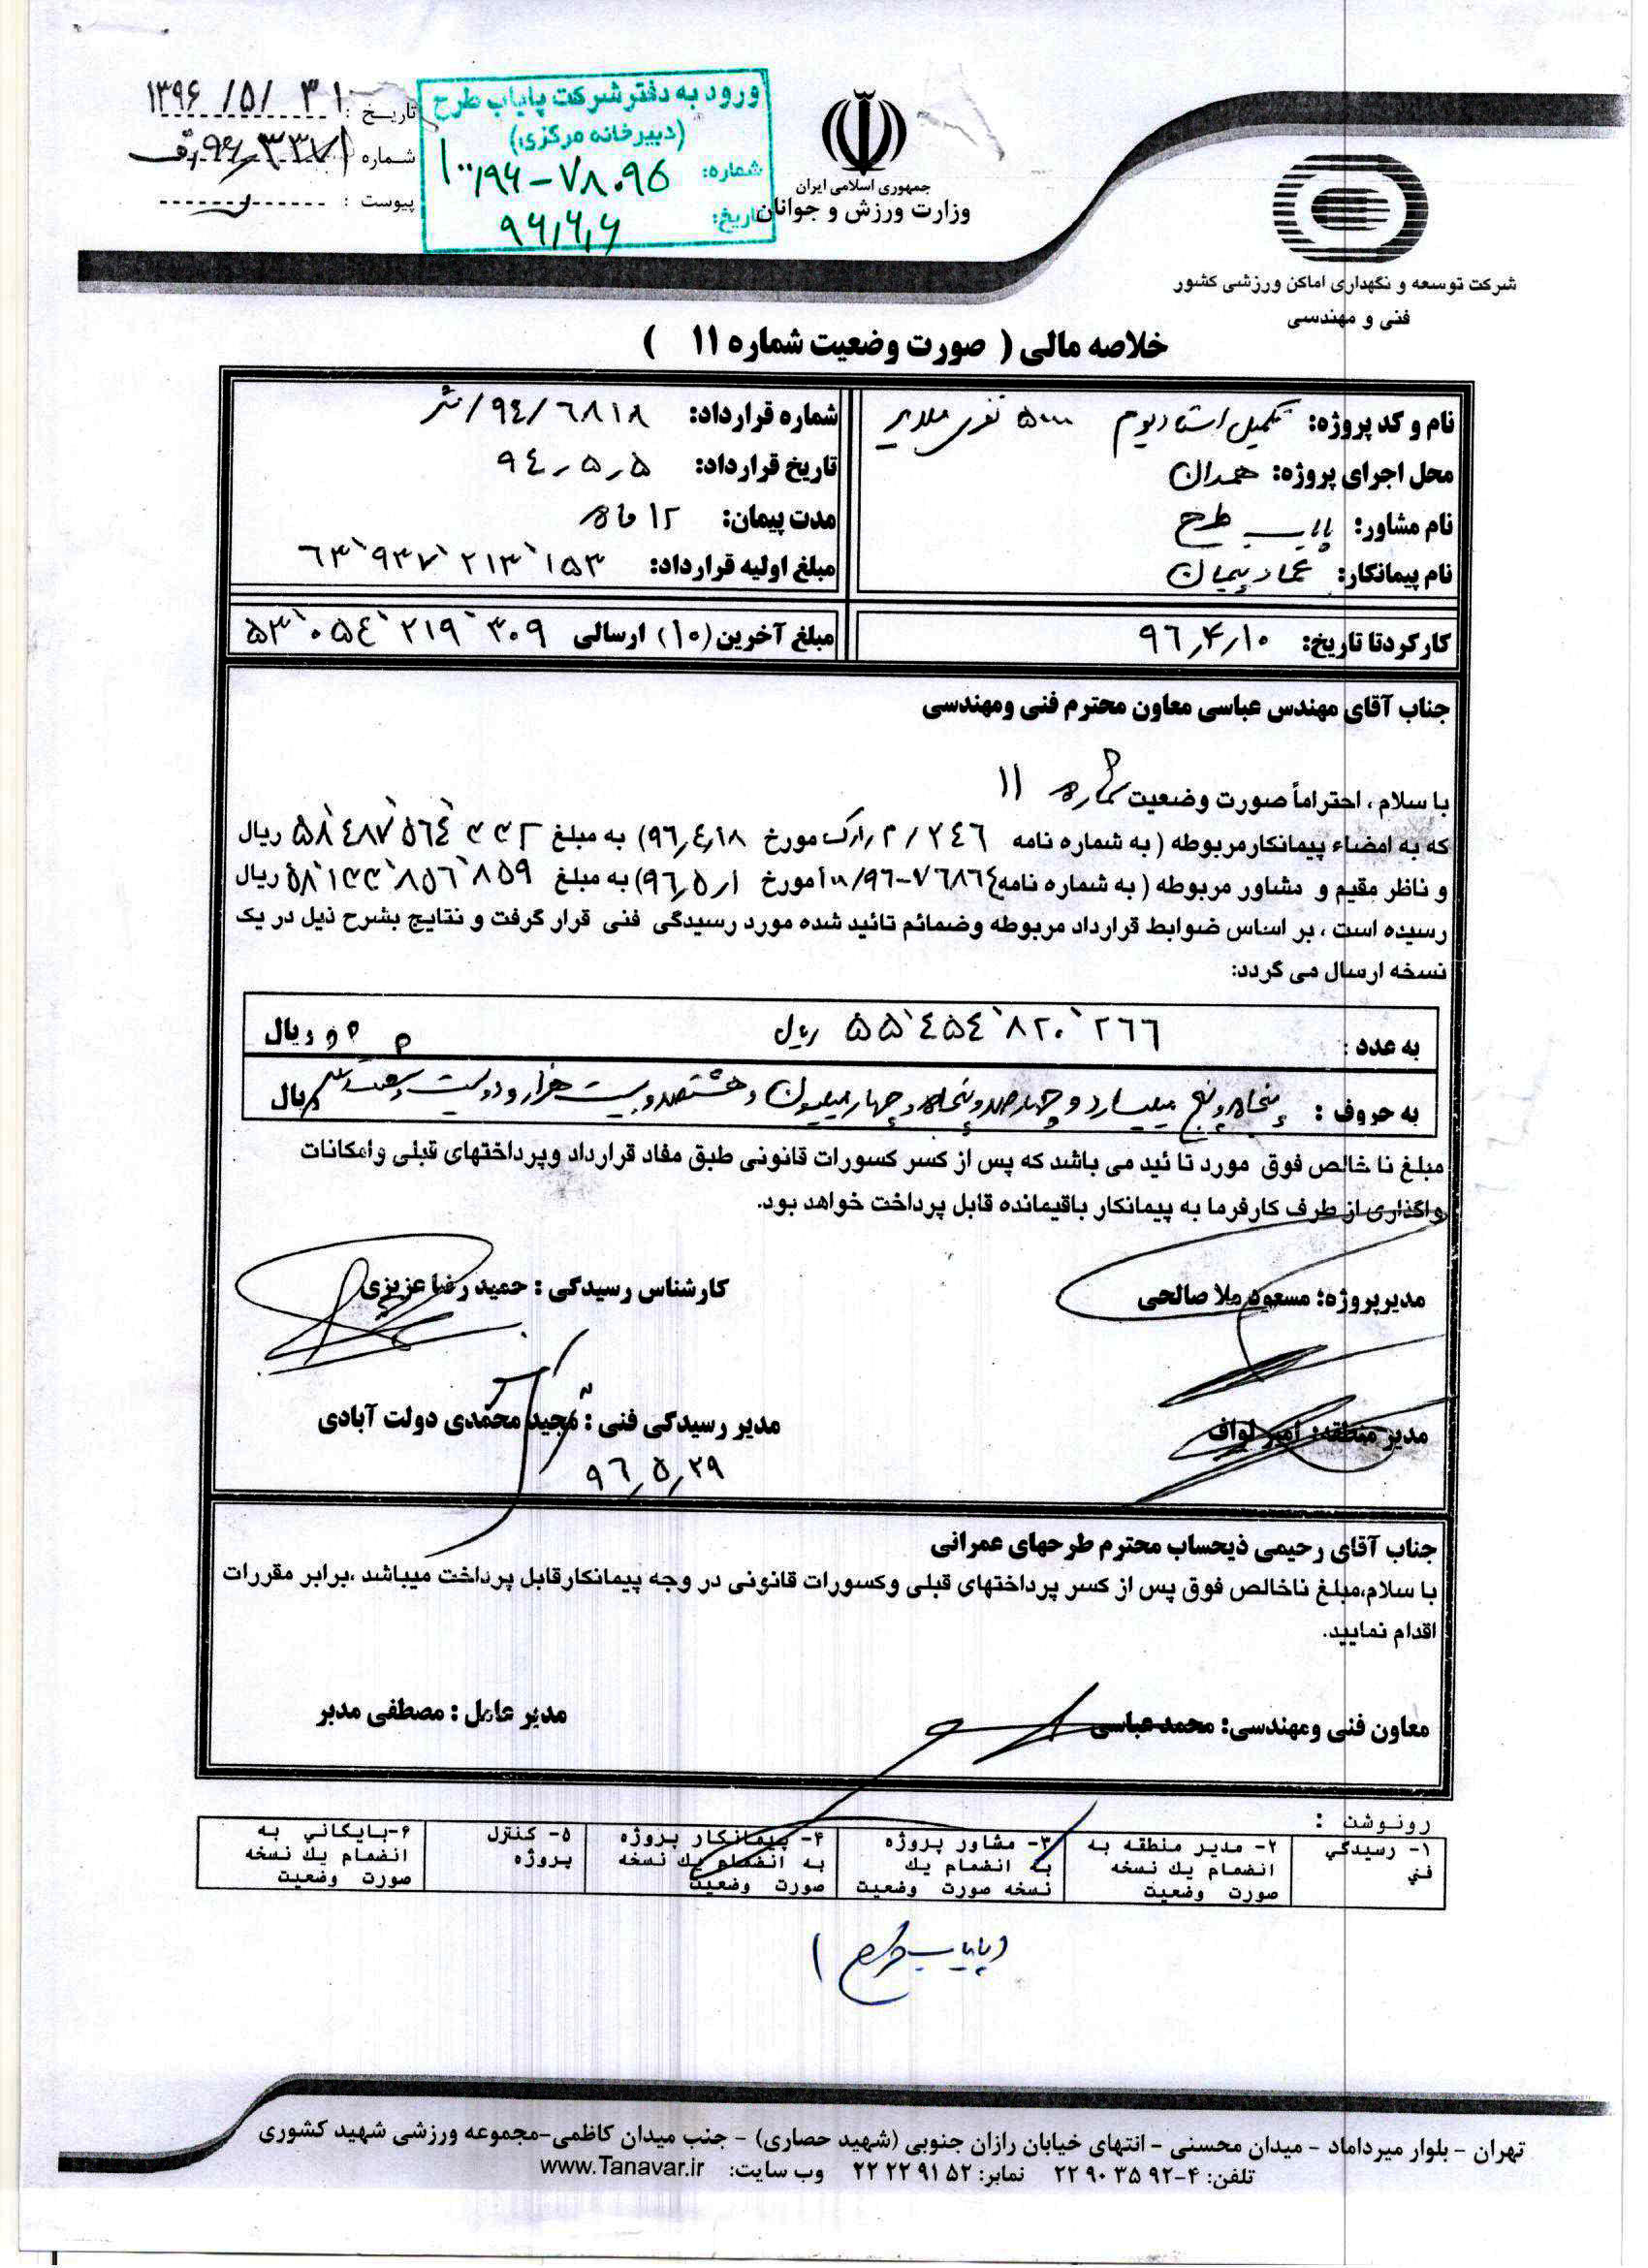 تاریخ : ۱۳۹۶/۵/۳۱
شماره
پیوست :
ورود به دفتر شرکت پایاب طرح
(دبیرخانه مرکزی)
شماره: ۱۰۰/۹۶-۷۸۰۹۵
تاریخ: ۹۶,۶,۶
جمهوری اسلامی ایران
وزارت ورزش و جوانان
شرکت توسعه و نگهداری اماکن ورزشی کشور
فنی و مهندسی
خلاصه مالی ( صورت وضعیت شماره ۱۱ )
نام و کد پروژه: تکمیل استادیوم ۵۰۰۰ نفری ملایر
محل اجرای پروژه: همدان
نام مشاور: پایاب طرح
نام پیمانکار: عماد پیمان
شماره قرارداد: ۹۴/۶۸۱۸/ش
تاریخ قرارداد: ۹۴,۵,۵
مدت پیمان: ۱۲ ماه
مبلغ اولیه قرارداد: ۶۳٬۹۳۷٬۲۱۳٬۱۵۳
کارکرد تا تاریخ: ۹۶,۴,۱۰
مبلغ آخرین (۱۰) ارسالی ۵۳٬۰۵۴٬۲۱۹٬۳۰۹
جناب آقای مهندس عباسی معاون محترم فنی ومهندسی
با سلام ، احتراماً صورت وضعیت شماره ۱۱
که به امضاء پیمانکارمربوطه ( به شماره نامه مورخ ۹۶,۴,۱۸) به مبلغ ۵۸٬۴۸۷٬۵۶۴٬۳۳۲ ریال
و ناظر مقیم و مشاور مربوطه ( به شماره نامه ۱۰۰/۹۶-۷۶۸۶۴ مورخ ۹۶,۵,۱) به مبلغ ۵۸٬۱۳۳٬۸۵۶٬۸۵۹ ریال
رسیده است ، بر اساس ضوابط قرارداد مربوطه وضمائم تائید شده مورد رسیدگی فنی قرار گرفت و نتایج بشرح ذیل در یک
نسخه ارسال می گردد:
به عدد : ۵۵٬۴۵۴٬۸۲۰٬۲۶۶ ریال ریال
به حروف : پنجاه و پنج میلیارد و چهارصد و پنجاه و چهار میلیون و هشتصد و بیست هزار و دویست و شصت و شش ریال
مبلغ نا خالص فوق مورد تا ئید می باشد که پس از کسر کسورات قانونی طبق مفاد قرارداد وپرداختهای قبلی وامکانات
واگذاری از طرف کارفرما به پیمانکار باقیمانده قابل پرداخت خواهد بود.
مدیرپروژه: مسعود ملا صالحی
کارشناس رسیدگی : حمید رضا عزیزی
مدیر منطقه: امیر لواف
مدیر رسیدگی فنی : مجید محمدی دولت آبادی
۹۶,۵,۲۹
جناب آقای رحیمی ذیحساب محترم طرحهای عمرانی
با سلام،مبلغ ناخالص فوق پس از کسر پرداختهای قبلی وکسورات قانونی در وجه پیمانکارقابل پرداخت میباشد ،برابر مقررات
اقدام نمایید.
معاون فنی ومهندسی: محمد عباسی
مدیر عامل : مصطفی مدبر
رونوشت :
۱- رسیدگی
فنی
۲- مدیر منطقه به
انضمام یك نسخه
صورت وضعیت
۳- مشاور پروژه
به انضمام یك
نسخه صورت وضعیت
۴- پیمانکار پروژه
به انضمام یك نسخه
صورت وضعیت
۵- کنترل
پروژه
۶-بایگانی به
انضمام یك نسخه
صورت وضعیت
(پایاب طرح)
تهران - بلوار میرداماد - میدان محسنی - انتهای خیابان رازان جنوبی (شهید حصاری) - جنب میدان کاظمی-مجموعه ورزشی شهید کشوری
تلفن: ۴-۹۲ ۳۵ ۹۰ ۲۲ نمابر: ۵۲ ۹۱ ۲۲ ۲۲ وب سایت: www.Tanavar.ir